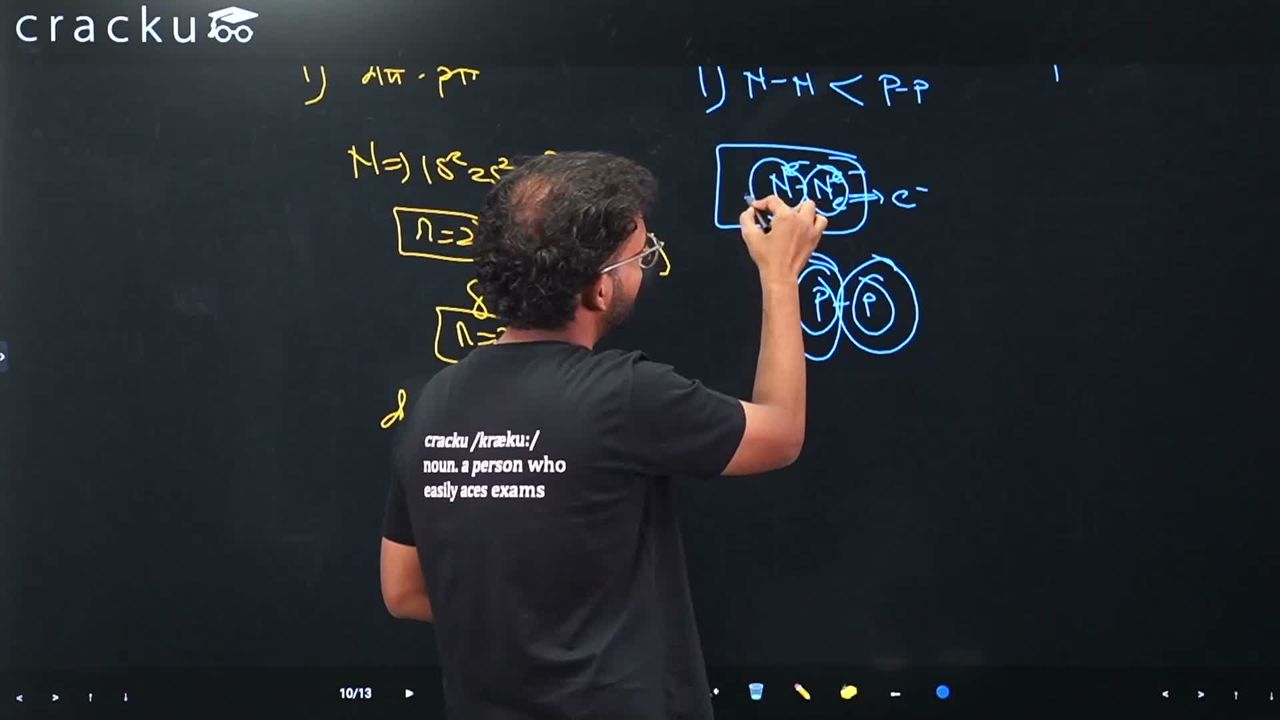 cracku
1) dπ - pπ
N => 1s² 2s²
n=2
n=
d
1) N-N < P-P
N - N => e⁻
P - P
cracku /kræku:/
noun. a person who
easily aces exams
10/13